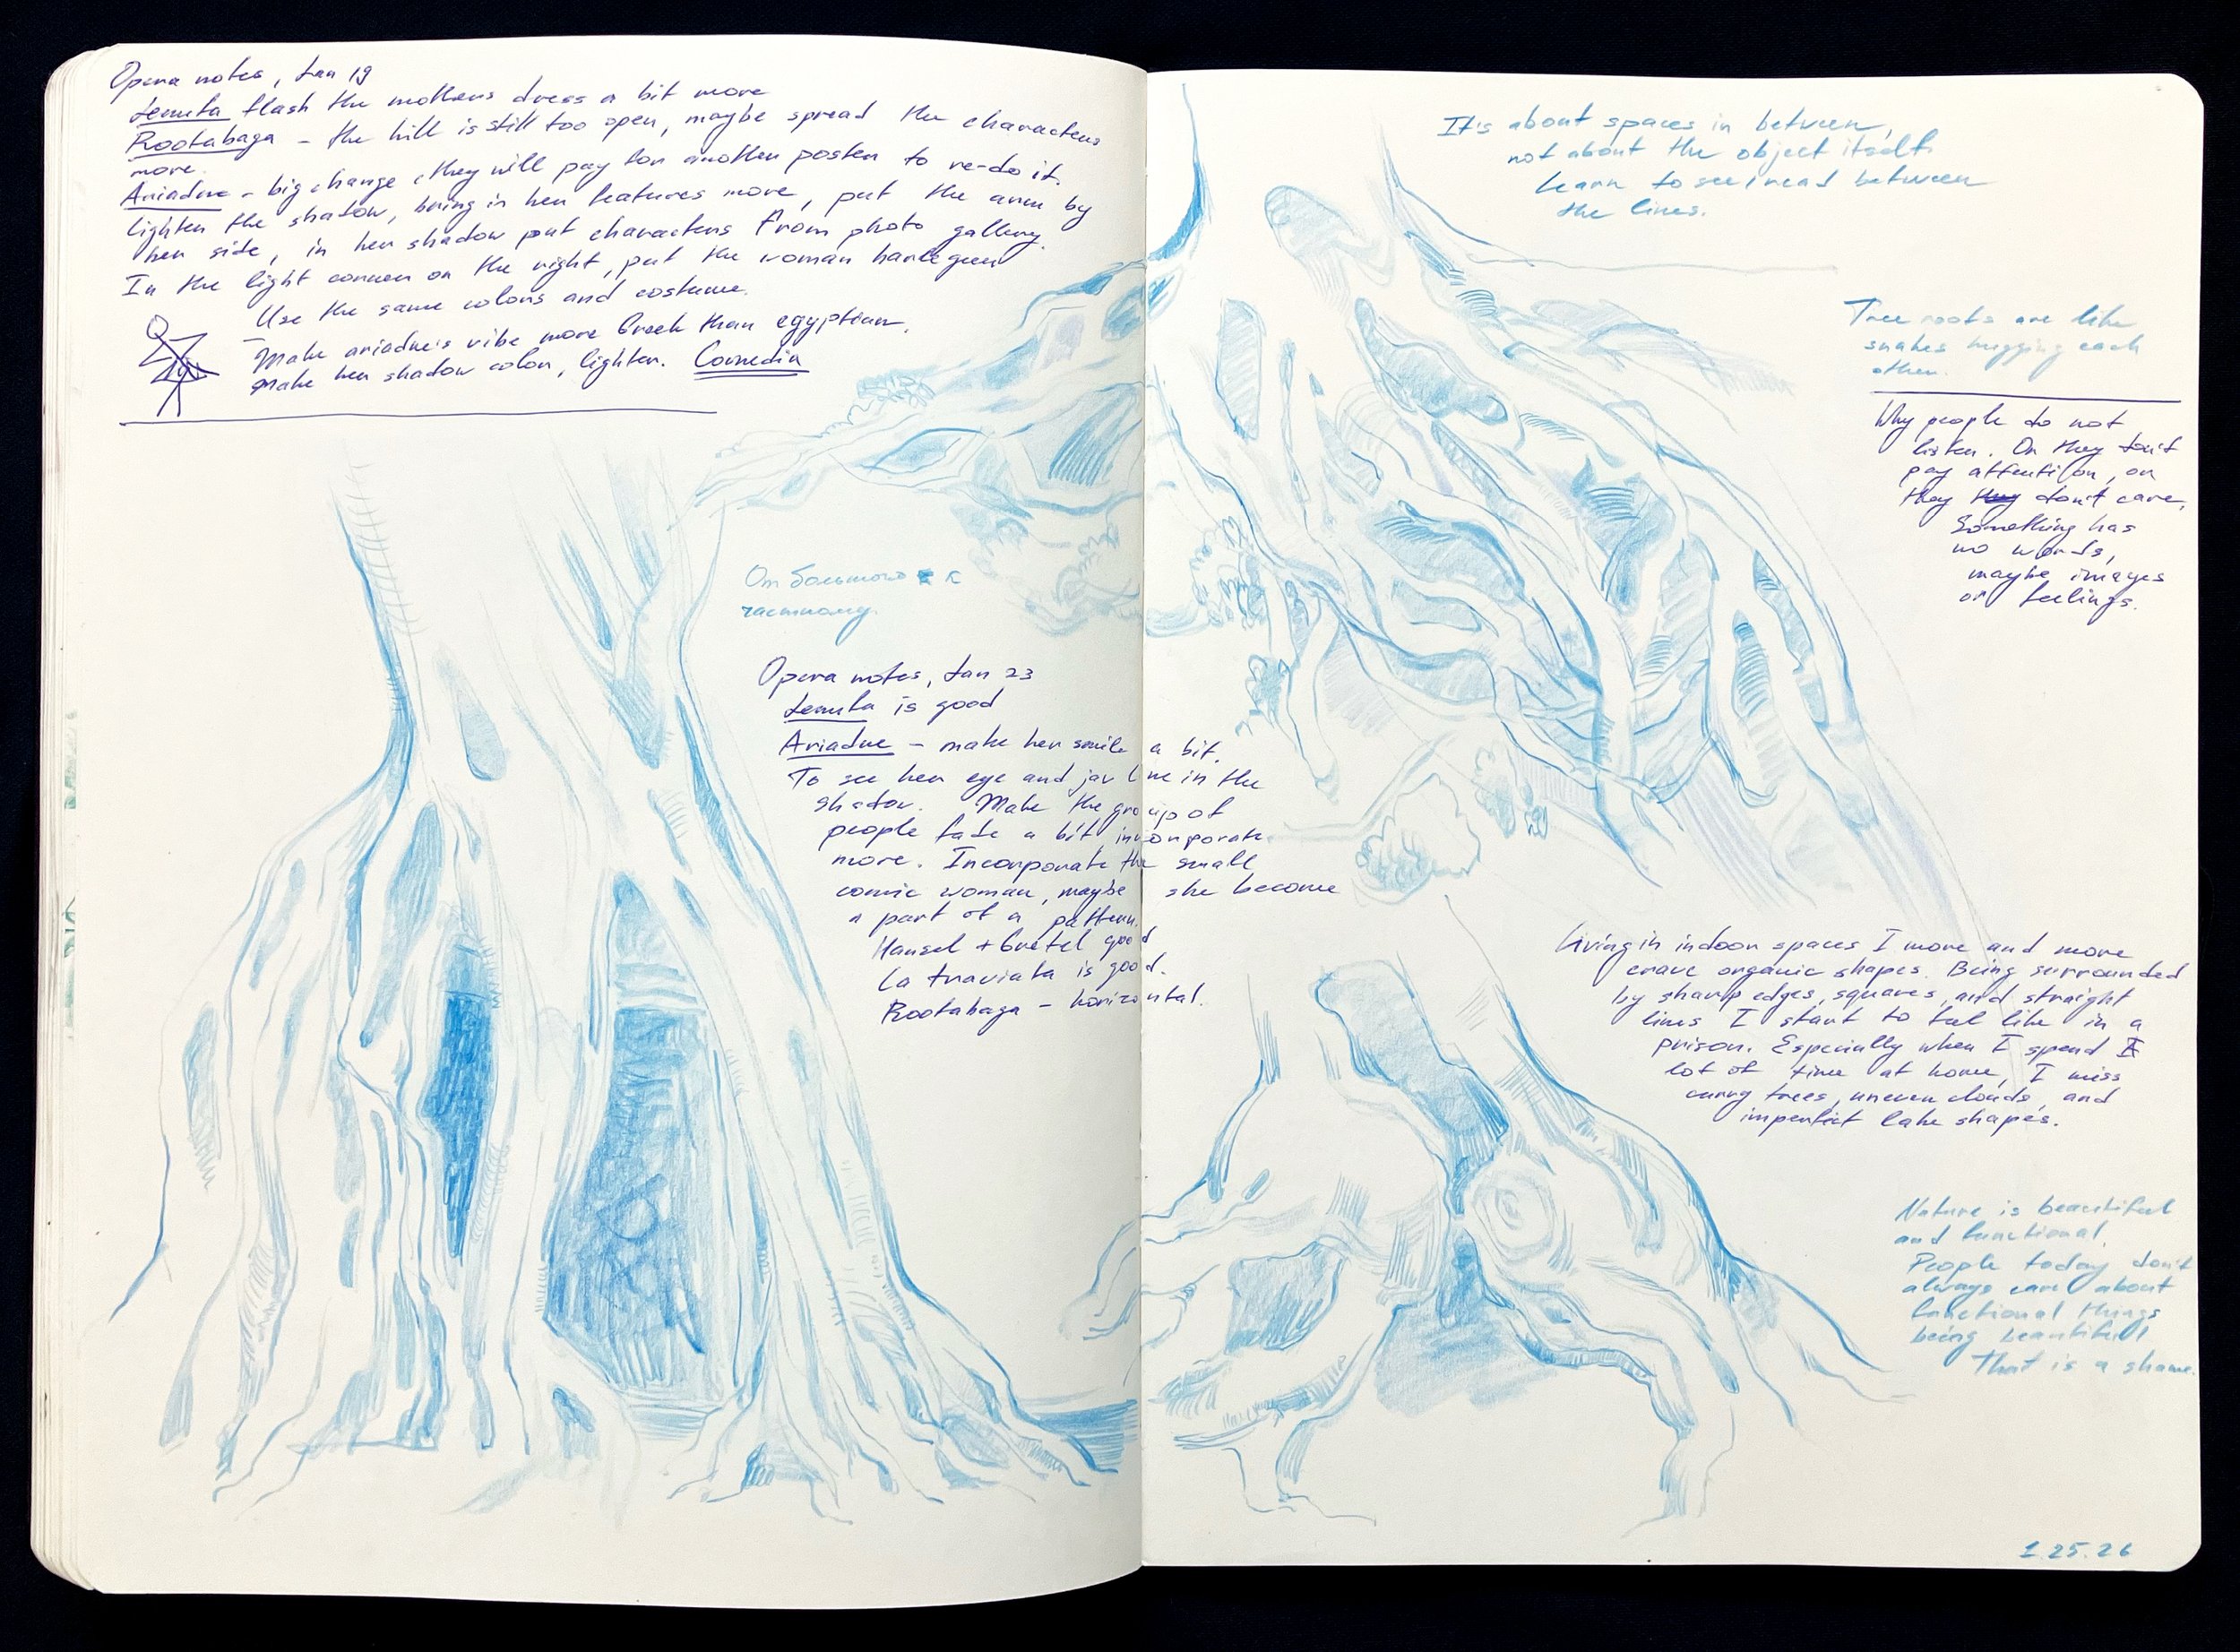 Opera notes, Jan 19
Jenufa flash the mothers dress a bit more
Rootabaga - the hill is still too open, maybe spread the characters
more.
Ariadne - big change, they will pay for another poster to re-do it.
lighten the shadow, bring in her features more, put the arm by
her side, in her shadow put characters from photo gallery.
In the light corner on the right, put the woman harlequen
Use the same colors and costume.
Make ariadne's vibe more Greek than egyptian.
make her shadow color, lighter. Comedia
От большого к
частному.
Opera notes, Jan 23
Jenufa is good
Ariadne - make her smile a bit.
To see her eye and jav line in the
shadow. Make the group of
people fade a bit incorporate
more. Incorporate the small
comic woman, maybe she become
a part of a pattern.
Hansel + Gretel good
La traviata is good.
Rootabaga - horizontal.
It's about spaces in between,
not about the object itself.
Learn to see/read between
the lines.
Tree roots are like
snakes hugging each
other.
Why people do not
listen. Or they don't
pay attention, or
they they don't care,
Something has
no words,
maybe images
or feelings.
Living in indoor spaces I more and more
crave organic shapes. Being surrounded
by sharp edges, squares, and straight
lines I start to feel like in a
prison. Especially when I spend a
lot of time at home, I miss
curvy trees, uneven clouds, and
imperfect lake shapes.
Nature is beautiful
and functional.
People today don't
always care about
functional things
being beautiful!
That is a shame.
1.25.26